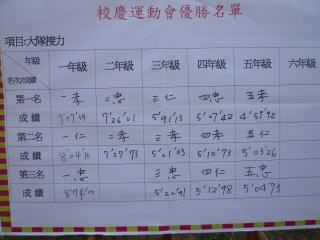 校慶運動會優勝名單
項目:大隊接力
年級 名次/成績 一年級 二年級 三年級 四年級 五年級 六年級
第一名 一孝 二忠 三仁 四忠 五孝
成績 7'26"01 5'07"42 4'59"92
第二名 一仁 二孝 三孝 四孝 五仁
成績 7'27"73 5'21"03 5'10"73 5'03"26
第三名 一忠 三忠 四仁 五忠
成績 5'22"91 5'12"98 5'04"73